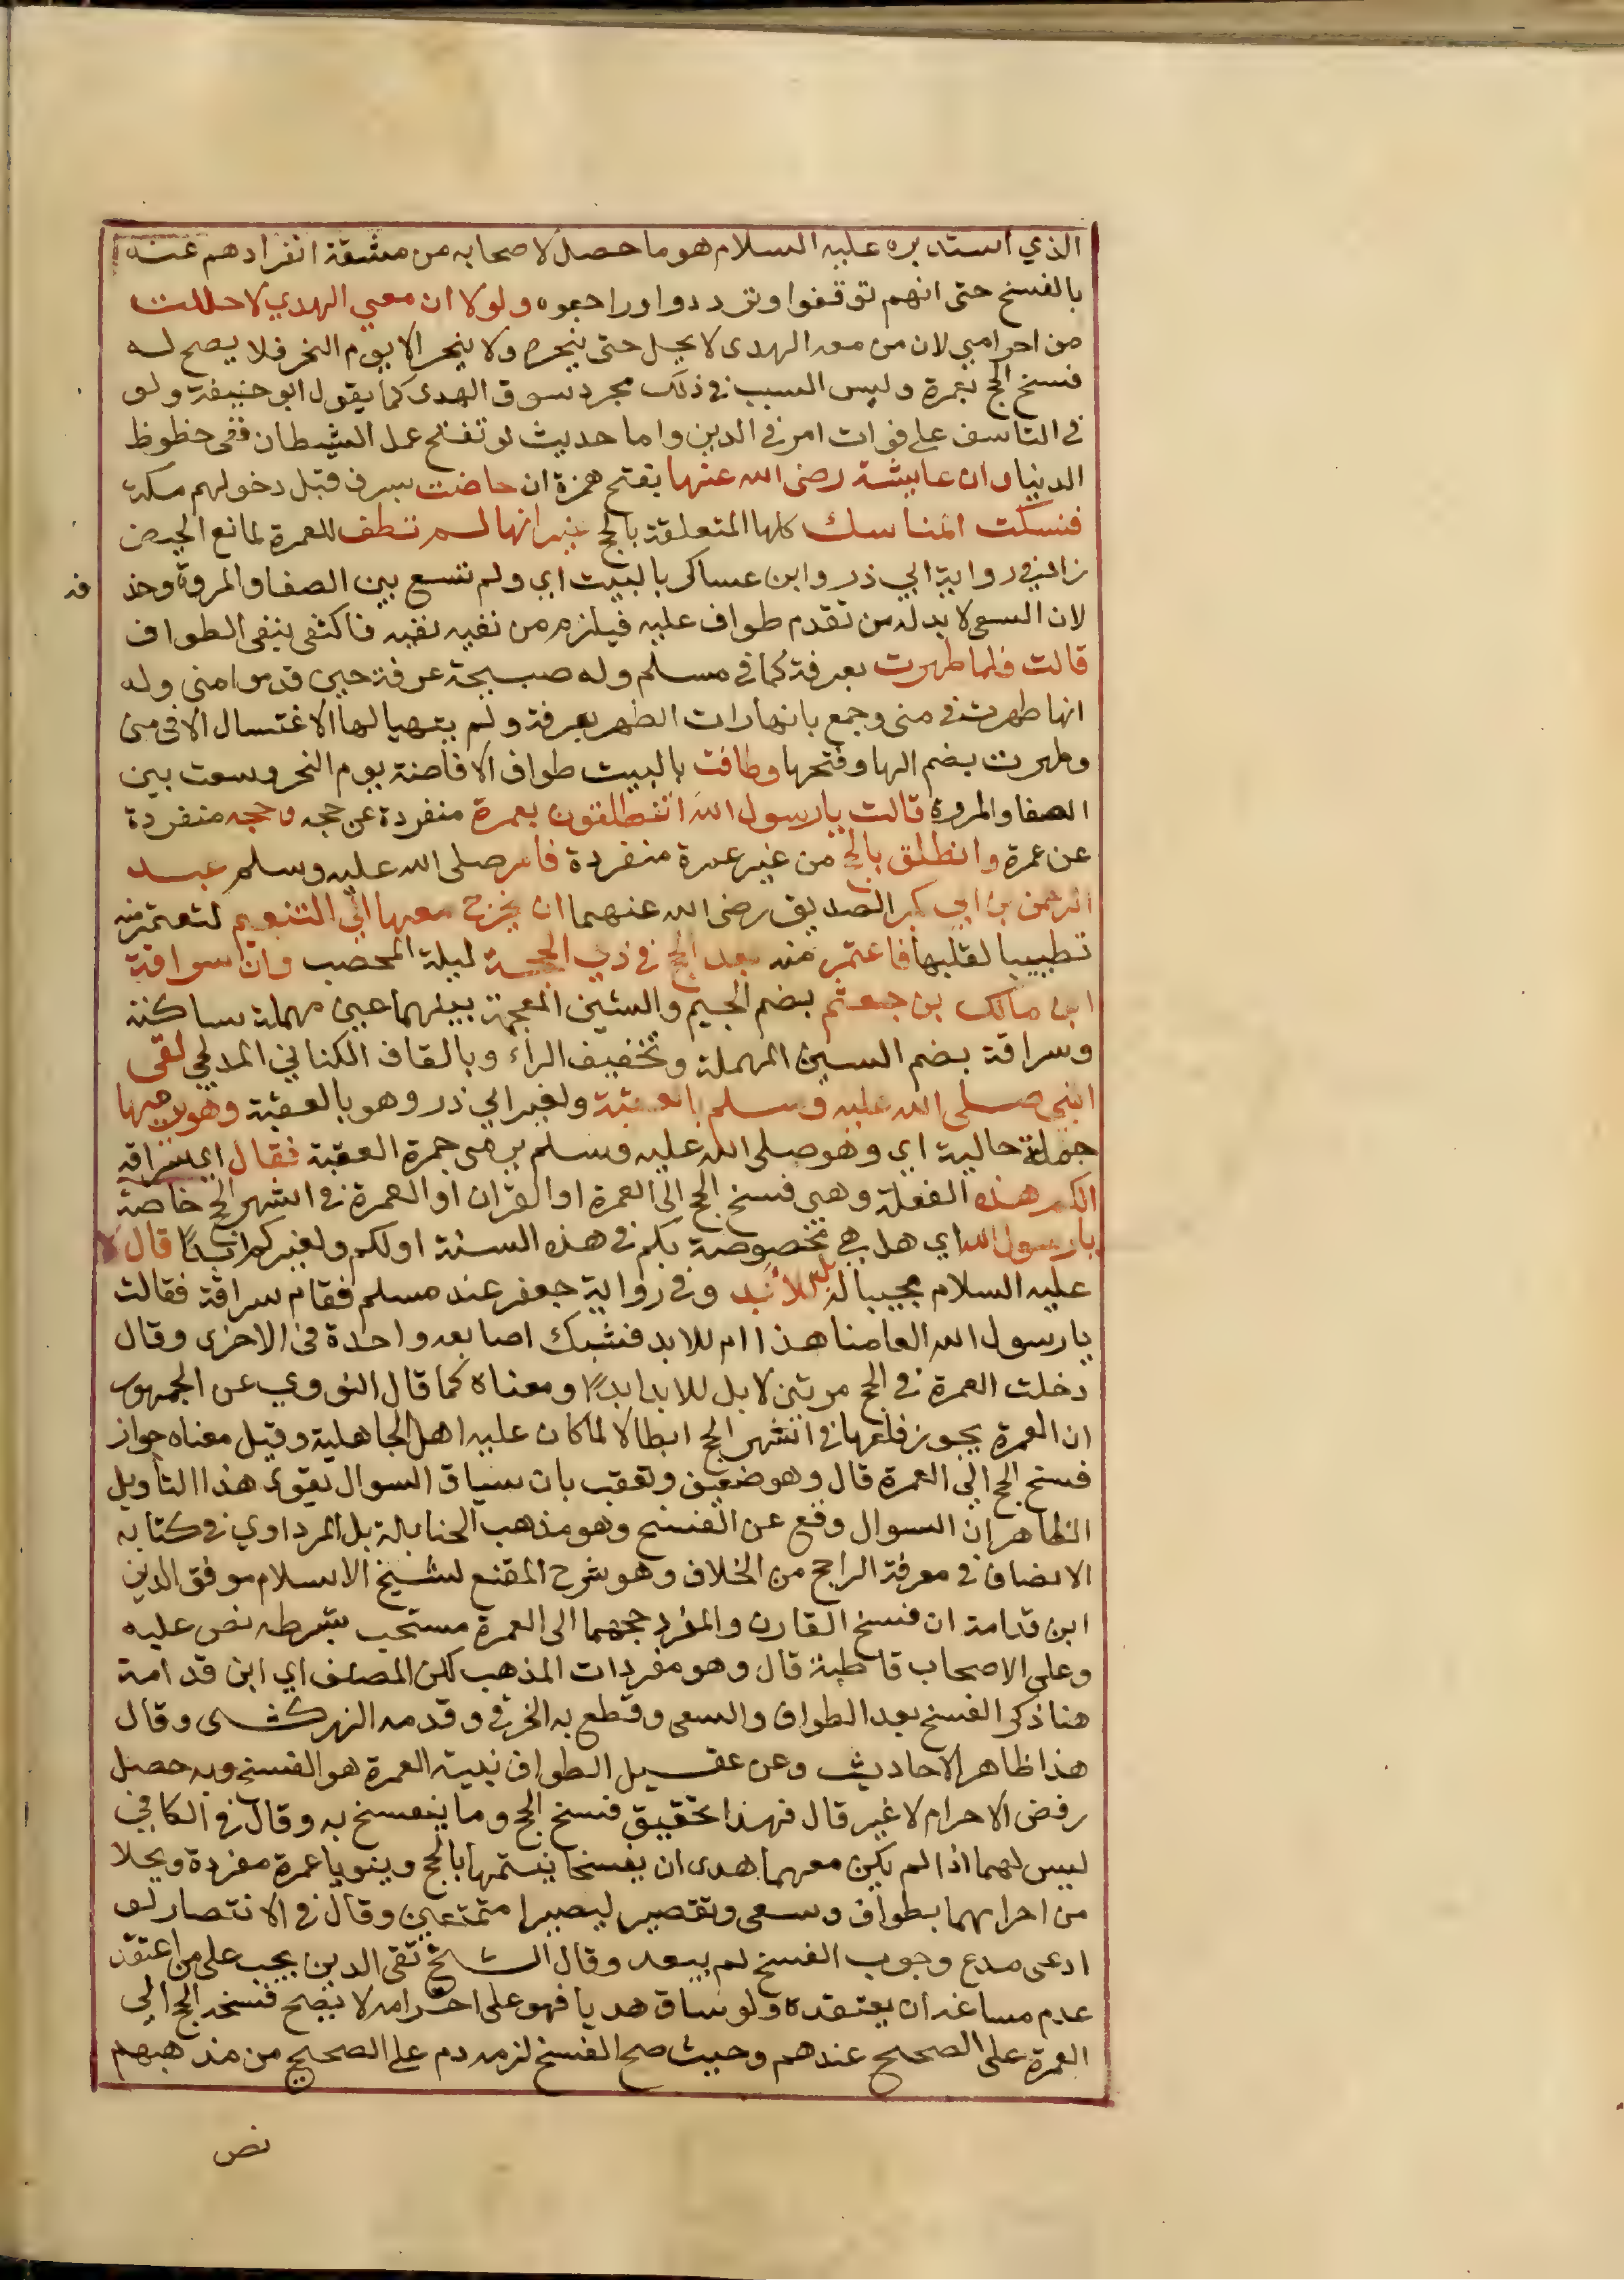 الذي استدبره عليه السلام هو ما حصل لاصحابه من مشقة انفرادهم عنه
بالفسخ حتى انهم توقفوا وترددوا وراجعوه ولولا ان معي الهدي لاحللت
من احرامي لان من معه الهدى لا يحل حتى ينحره ولا ينحر الا يوم النحر فلا يصح له
فسخ الحج بعمرة وليس السبب في ذلك مجرد سوق الهدى كما يقول ابو حنيفة ولو
في التاسف على فوات امر في الدين واما حديث لو تفتح عمل الشيطان ففى حظوظ
الدنيا وان عايشة رضى الله عنها بفتح همزة ان حاضت بسرف قبل دخولهم مكة
فنسكت المناسك كلها المتعلقة بالحج غير انها لم تطف للعمرة لمانع الحيض
زاد في رواية ابي ذر وابن عساكر بالبيت اي ولم تسع بين الصفا والمروة وحذ
فه
لان السعى لا بد له من تقدم طواف عليه فيلزم من نفيه نفيه فاكتفى بنفى الطواف
قالت فلما طهرت بعرفة كما في مسلم وله صبيحة عرفة حين قدموا منى وله
انها طهرت في منى وجمع بانها رات الطهر بعرفة ولم يتهيا لها الاغتسال الا في منى
وطهرت بضم الها وفتحها وطافت بالبيت طواف الافاضة يوم النحر وسعت بين
الصفا والمروة قالت يارسول الله اتنطلقون بعمرة منفردة عن حجه وحجه منفردة
عن عمرة وانطلق بالحج من غير عمرة منفردة فامر صلى الله عليه وسلم عبد
الرحمن بن ابي بكر الصديق رضى الله عنهما ان يخرج معها الي التنعيم لتعتمر منه
تطييبا لقلبها فاعتمرت منه بعد الحج في ذي الحجة ليلة المحصب وان سراقة
ابن مالك بن جعشم بضم الجيم والشين المعجمة بينهما عين مهملة ساكنة
وسراقة بضم السين المهملة وتخفيف الراء وبالقاف الكناني المدلجي لقى
النبي صلى الله عليه وسلم بالعقبة ولغير ابي ذر وهو بالعقبة وهو يرميها
جملة حالية اي وهو صلى الله عليه وسلم يرمى جمرة العقبة فقال اي سراقه
الكم هذه الفعلة وهى فسخ الحج الى العمرة او القران او العمرة في اشهر الحج خاصة
يارسول الله اي هل هي مخصوصة بكم في هذه السنة او لكم ولغيركم ابدًا قال لا
عليه السلام مجيبا له بل للابد وفي رواية جعفر عند مسلم فقام سراقة فقالت
يارسول الله العامنا هذا ام للابد فشبك اصابعه واحدة في الاخرى وقال
دخلت العمرة في الحج مرتين لا بل للابد ابدًا ومعناه كما قال النووي عن الجمهور
ان العمرة يجوز فعلها في اشهر الحج ابطالا لما كان عليه اهل الجاهلية وقيل معناه جواز
فسخ الحج الي العمرة قال وهو ضعيف وتعقب بان سياق السوال يقوى هذا التأويل
الظاهر ان السوال وقع عن الفسخ وهو مذهب الحنابلة بل المرداوي في كتابه
الانصاف في معرفة الراجح من الخلاف وهو شرح المقنع لشيخ الاسلام موفق الدين
ابن قدامة ان فسخ القارن والمفرد حجهما الى العمرة مستحب بشرطه نص عليه
وعلى الاصحاب قاطبة قال وهو مفردات المذهب لكن المصنف اي ابن قدامة
هنا ذكر الفسخ بعد الطواف والسعى وقطع به الخرقي وقدمه الزركشى وقال
هذا ظاهر الاحاديث وعن عقيل الطواف بنية العمرة هو الفسخ وبه حصل
رفض الاحرام لا غير قال فهذا تحقيق فسخ الحج وما ينفسخ به وقال في الكافي
ليس لهما اذا لم يكن معهما هدى ان يفسخا نيتهما بالحج وينويا عمرة مفردة ويحلا
من احرامهما بطواف وسعى وتقصير ليصيرا متمتعين وقال في الانتصار لو
ادعى مدع وجوب الفسخ لم يبعد وقال الشيخ تقى الدين يجب على من اعتقد
عدم مساغه ان يعتقده ولو ساق هديا فهو على احرامه لا يصح فسخه الحج الي
العمرة على الصحيح عندهم وحيث صح الفسخ لزمه دم على الصحيح من مذهبهم
نص